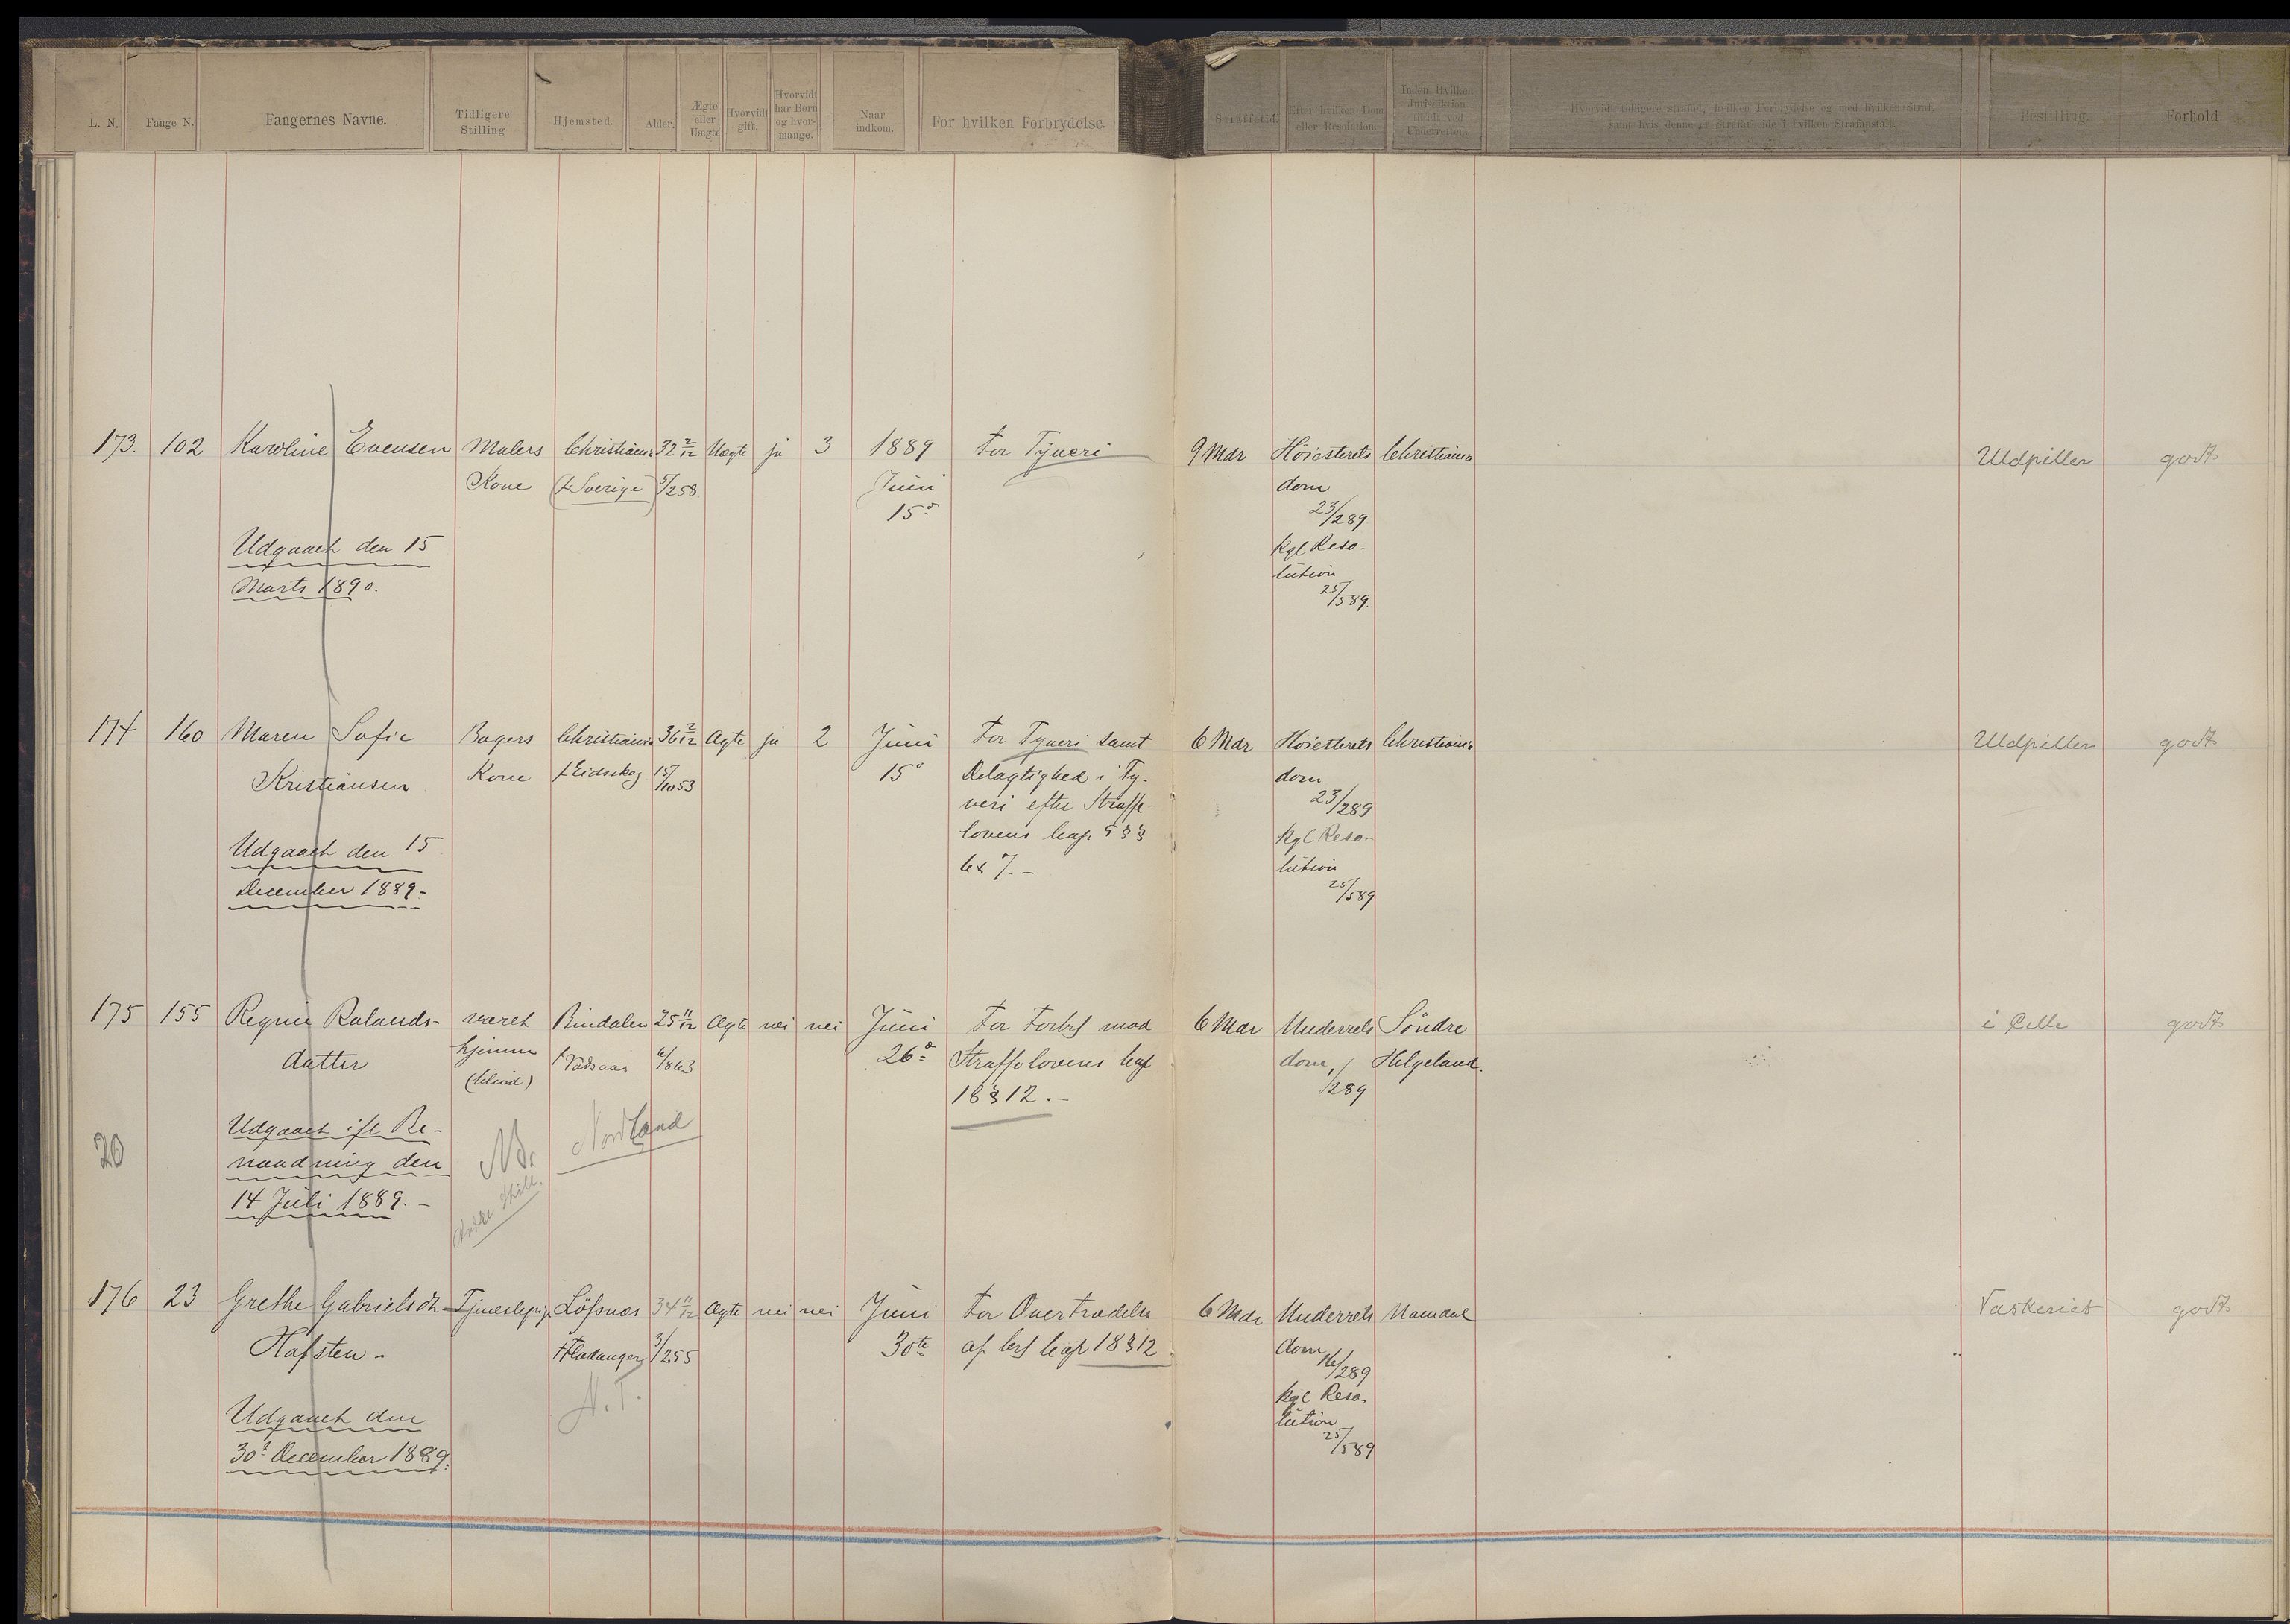 L. N.
Fange N.
Fangernes Navne.
Tidligere
Stilling
Hjemsted.
Alder.
Ægte
eller
Uægte
Hvorvidt
gift.
Hvorvidt
har Børn
og hvor-
mange.
Naar
indkom.
For hvilken Forbrydelse.
Straffetid.
Efter hvilken Dom
eller Resolution.
Inden Hvilken
Jurisdiktion
tiltalt ved
Underretten.
Hvorvidt tidligere straffet, hvilken Forbrydelse og med hvilken Straf,
samt hvis denne er Strafarbeide i hvilken Strafanstalt.
Bestilling
Forhold
173. 102 Karoline Evensen Malers Christiania 32 2/12 Uægte ja 3 1889 For Tyveri 9 Mdr Høiesterets Christiania Uldpiller godt
Kone (f Sverige) 5/2 58. Juni dom
15de 23/2 89
Udgaaet den 15 kgl Reso-
Marts 1890. lution
25/5 89.
174 160 Maren Sofie Bagers Christiania 36 2/12 Ægte ja 2 Juni For Tyveri samt 6 Mdr Høiesterets Christiania Uldpiller godt
Kristiansen Kone f Eidsskog 15/10 53 15de Delagtighed i Ty- dom
veri efter Straffe- 23/2 89
Udgaaet den 15 lovens Cap 5 §§ kgl Reso-
December 1889.- 6 & 7.- lution
25/5 89
175 155 Regine Rolands- været Bindalen 25 11/12 Ægte nei nei Juni For Forbr mod 6 Mdr Underrets Søndre i Celle godt
datter hjemme f Vadsaas 6/8 63 26de Straffelovens Cap dom Helgeland.
(blind) 18 § 12.- 1/2 89
Udgaaet ifl Be-
20 naadning den NB. Nordland
14 Juli 1889.-
176 23 Grethe Gabrielsdtr Tjenestepige Løfsnæs 34 11/12 Ægte nei nei Juni For Overtrædelse 6 Mdr Underrets Namdal Vaskeriet godt
Hafsten - f Fladanger 3/2 55 30te af Crl Cap 18 § 12 dom
N. T. 16/2 89
Udgaaet den kgl Reso-
30te December 1889. lution
25/5 89